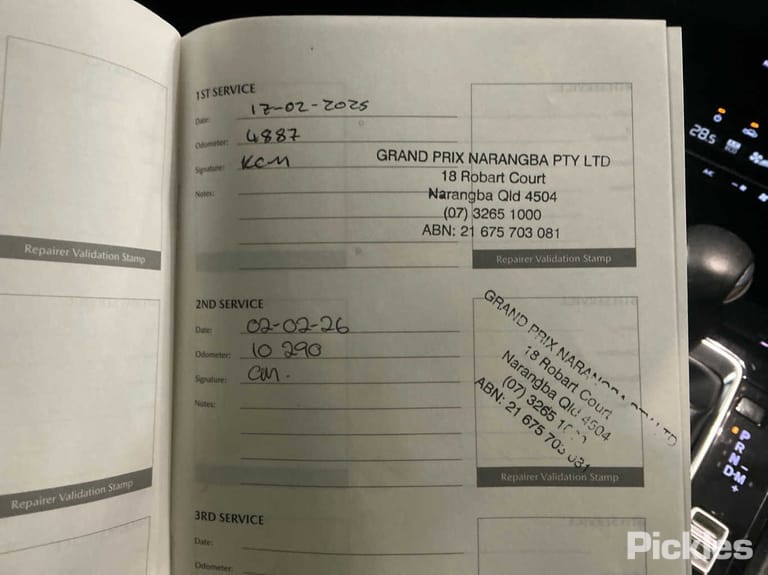 Repairer Validation Stamp
Repairer Validation Stamp
1ST SERVICE
Date: 17-02-2025
Odometer: 4887
Signature: KCM
Notes:
GRAND PRIX NARANGBA PTY LTD
18 Robart Court
Narangba Qld 4504
(07) 3265 1000
ABN: 21 675 703 081
Repairer Validation Stamp
2ND SERVICE
Date: 02-02-26
Odometer: 10 290
Signature: CM.
Notes:
GRAND PRIX NARANGBA PTY LTD
18 Robart Court
Narangba Qld 4504
(07) 3265 10
ABN: 21 675 703 081
Repairer Validation Stamp
3RD SERVICE
Date:
Odometer:
28.5
P
R
N -
D-M
+
Pickles